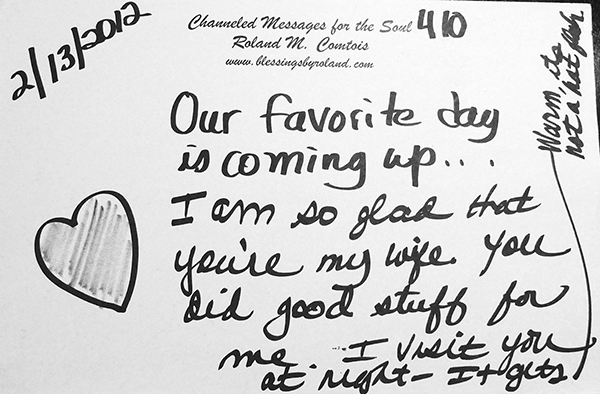 2/13/2012
Channeled Messages for the Soul 410
Roland M. Comtois
www.blessingsbyroland.com
Our favorite day
is coming up...
I am so glad that
you're my wife. You
did good stuff for
me... I visit you
at night- It gets
Warm, its
not a hot flash